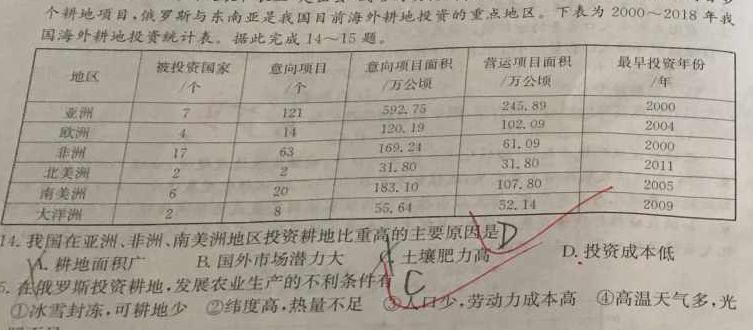 个耕地项目,俄罗斯与东南亚是我国目前海外耕地投资的重点地区。下表为2000～2018年我
国海外耕地投资统计表。据此完成14～15题。
地区 被投资国家/个 意向项目/个 意向项目面积/万公顷 营运项目面积/万公顷 最早投资年份/年
亚洲 7 121 592.75 245.89 2000
欧洲 4 14 120.19 102.09 2004
非洲 17 63 169.24 61.09 2000
北美洲 2 2 31.80 31.80 2011
南美洲 6 20 183.10 107.80 2005
大洋洲 2 8 55.64 52.14 2009
14.我国在亚洲、非洲、南美洲地区投资耕地比重高的主要原因是D
A.耕地面积广 B.国外市场潜力大 C.土壤肥力高 D.投资成本低
5.在俄罗斯投资耕地,发展农业生产的不利条件有C
①冰雪封冻,可耕地少 ②纬度高,热量不足 ③人口少,劳动力成本高 ④高温天气多,光